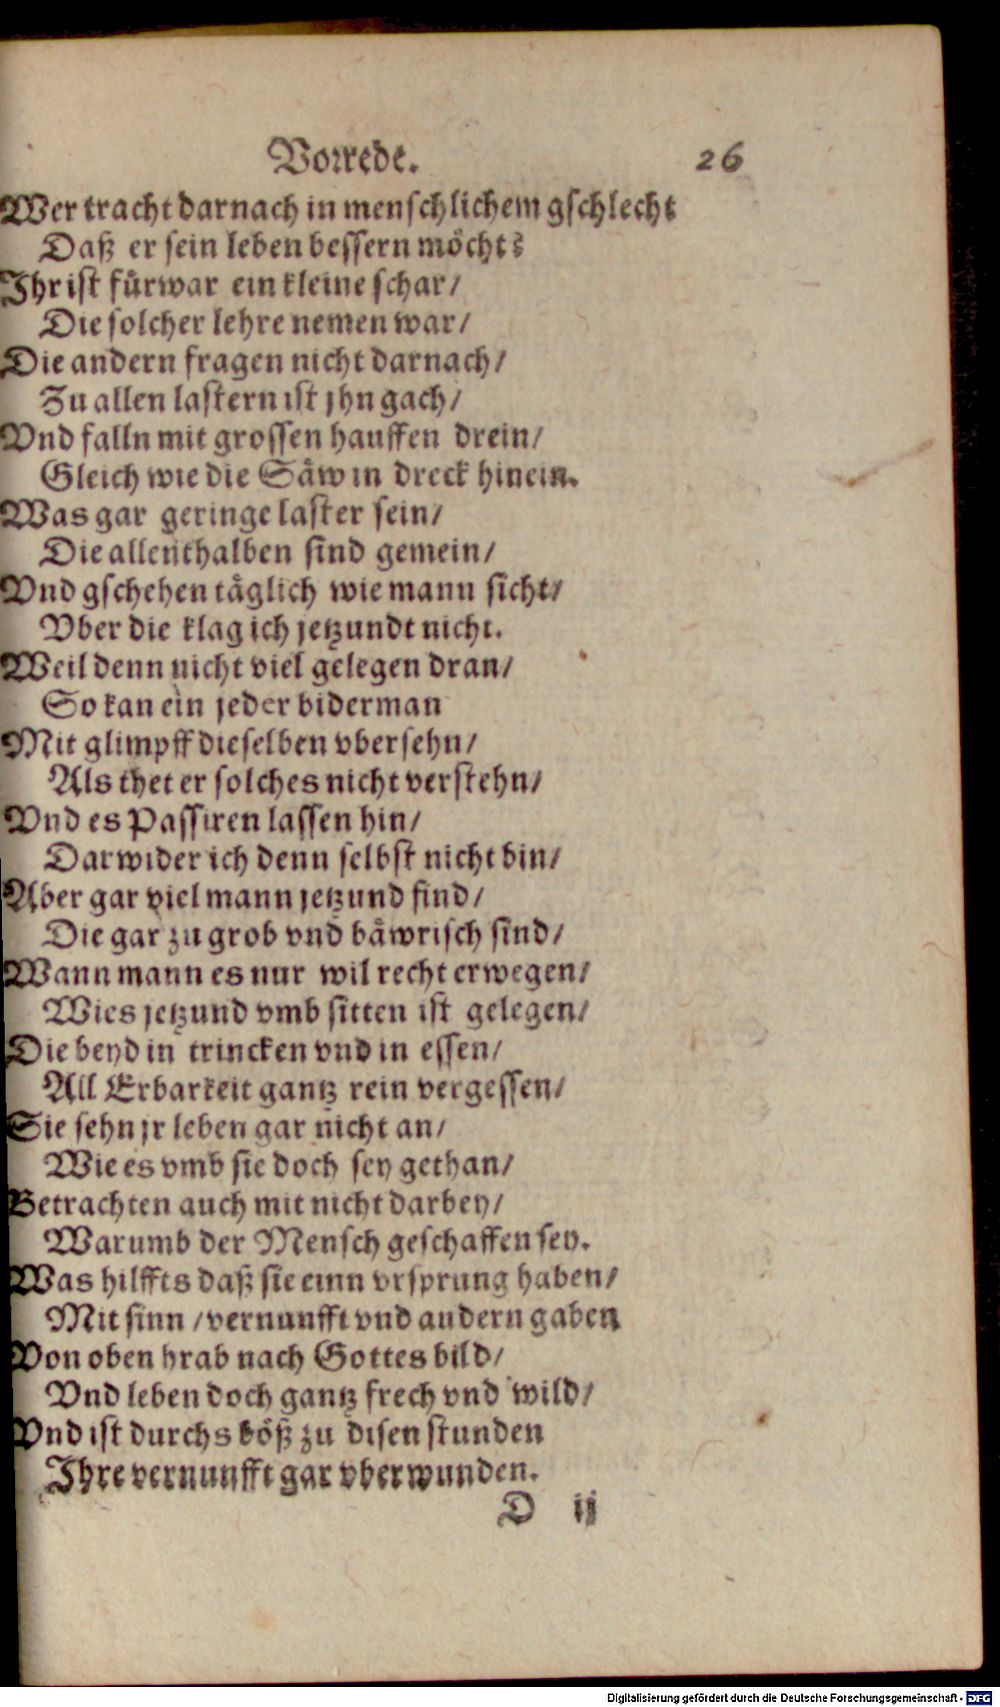 Vorrede. 26
Wer tracht darnach in menschlichem gschlecht
Daß er sein leben bessern möcht?
Ihr ist fürwar ein kleine schar/
Die solcher lehre nemen war/
Die andern fragen nicht darnach/
Zu allen lastern ist jhn gach/
Vnd falln mit grossen hauffen drein/
Gleich wie die Säw in dreck hinein.
Was gar geringe laster sein/
Die allenthalben sind gemein/
Vnd gschehen täglich wie mann sicht/
Vber die klag ich jetzundt nicht.
Weil denn nicht viel gelegen dran/
So kan ein jeder biderman
Mit glimpff dieselben vbersehn/
Als thet er solches nicht verstehn/
Vnd es Passiren lassen hin/
Darwider ich denn selbst nicht bin/
Aber gar viel mann jetzund find/
Die gar zu grob vnd bäwrisch sind/
Wann mann es nur wil recht erwegen/
Wies jetzund vmb sitten ist gelegen/
Die beyd in trincken vnd in essen/
All Erbarkeit gantz rein vergessen/
Sie sehn jr leben gar nicht an/
Wie es vmb sie doch sey gethan/
Betrachten auch mit nicht darbey/
Warumb der Mensch geschaffen sey.
Was hilffts daß sie einn vrsprung haben/
Mit sinn / vernunfft vnd andern gaben
Von oben hrab nach Gottes bild/
Vnd leben doch gantz frech vnd wild/
Vnd ist durchs böß zu disen stunden
Ihre vernunfft gar vberwunden.
D ij
Digitalisierung gefördert durch die Deutsche Forschungsgemeinschaft - DFG